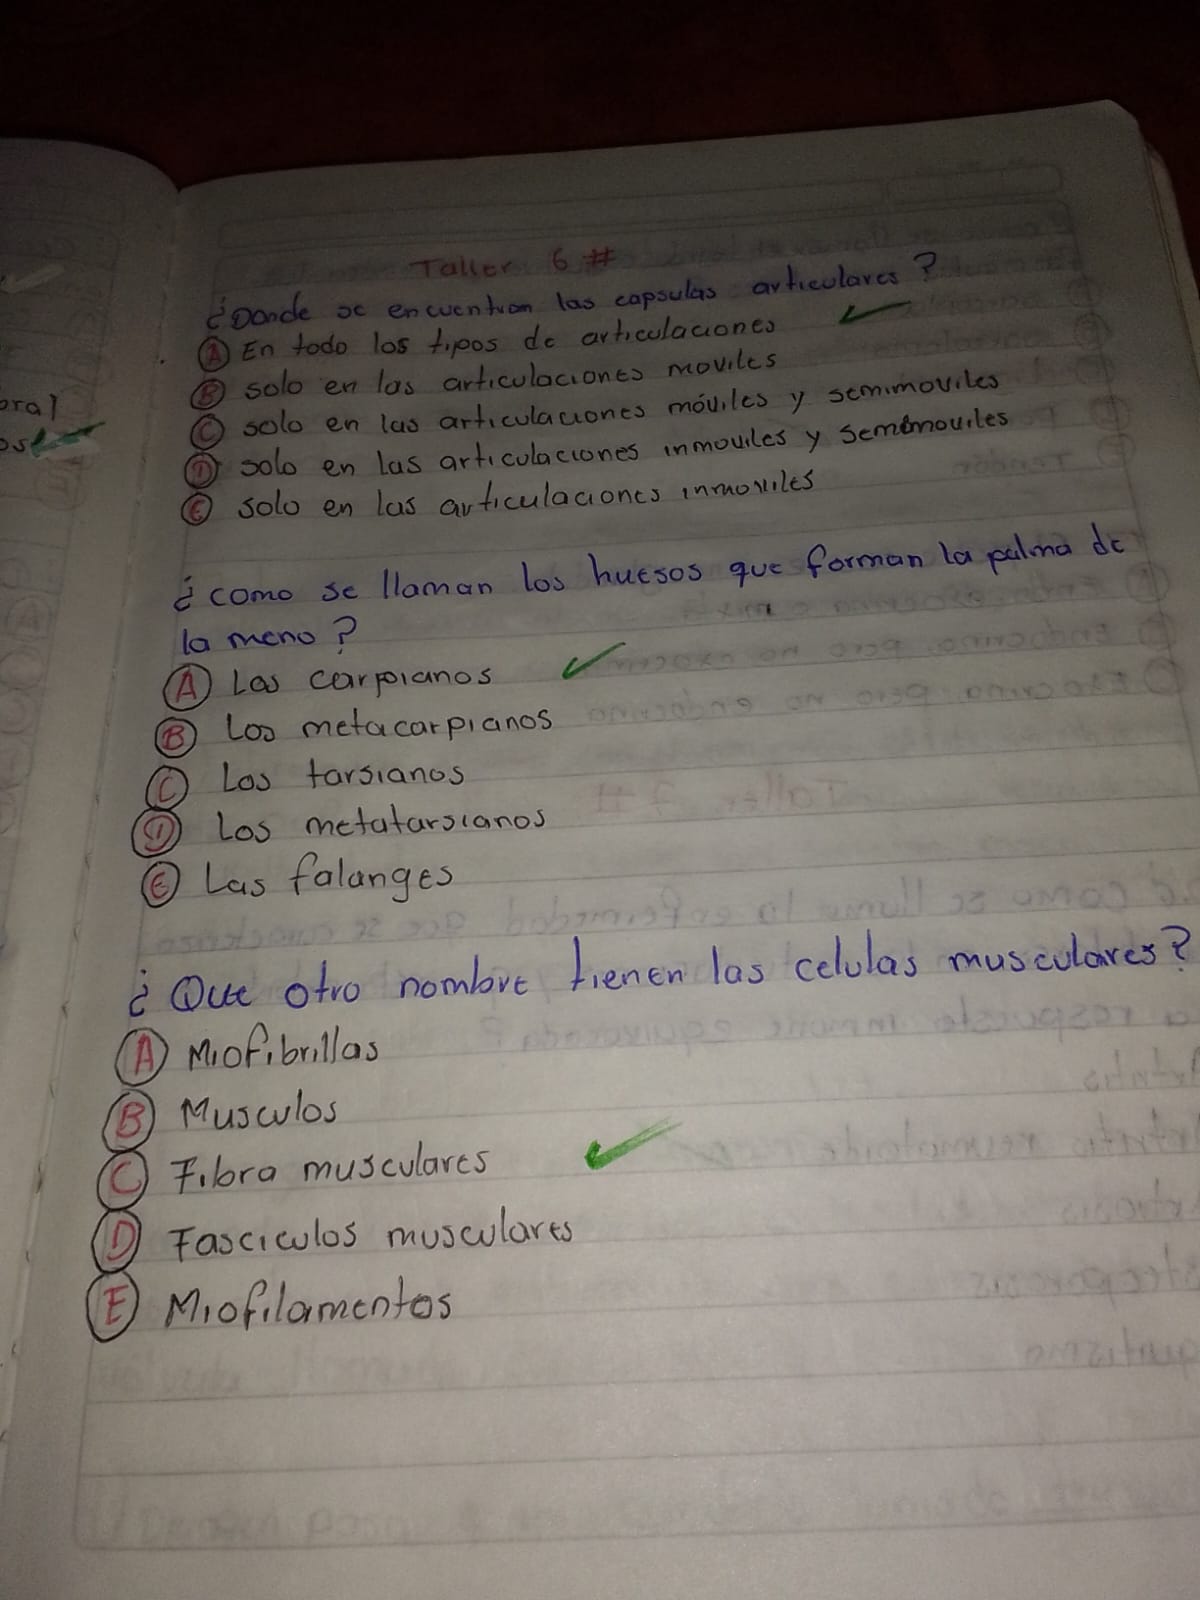 Taller 6 #
¿Donde se encuentran las capsulas articulares?
A En todo los tipos de articulaciones
B solo en las articulaciones moviles
C solo en las articulaciones móviles y semimoviles
D solo en las articulaciones inmoviles y semimoviles
E solo en las articulaciones inmoviles
¿como se llaman los huesos que forman la palma de
la meno?
A Los carpianos
B Los metacarpianos
C Los tarsianos
D Los metatarsianos
E Las falanges
¿Que otro nombre tienen las celulas musculares?
A Miofibrillas
B Musculos
C Fibra musculares
D Fasciculos musculares
E Miofilamentos
oral
os